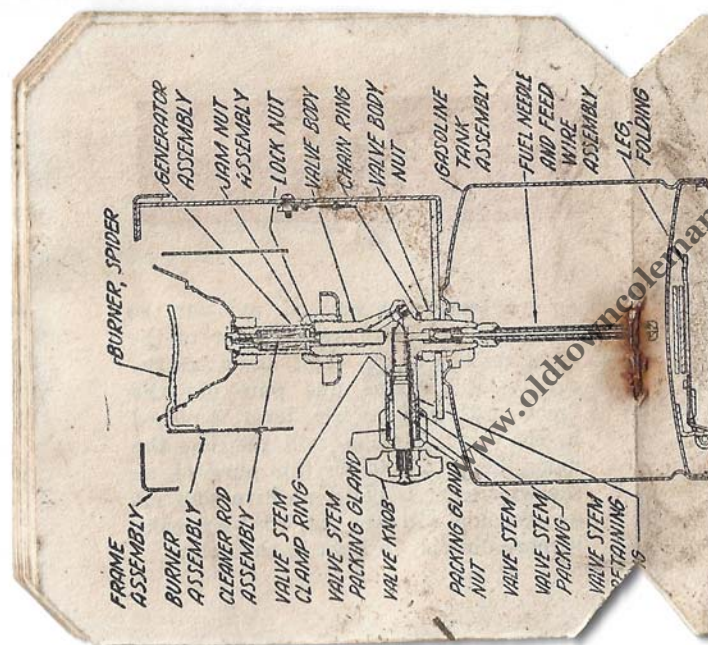 BURNER, SPIDER
GENERATOR
ASSEMBLY
JAM NUT
ASSEMBLY
LOCK NUT
VALVE BODY
CHAIN RING
VALVE BODY
NUT
GASOLINE
TANK
ASSEMBLY
FUEL NEEDLE
AND FEED
WIRE
ASSEMBLY
LEG,
FOLDING
FRAME
ASSEMBLY
BURNER
ASSEMBLY
CLEANER ROD
ASSEMBLY
VALVE STEM
CLAMP RING
VALVE STEM
PACKING GLAND
VALVE KNOB
PACKING GLAND
NUT
VALVE STEM
VALVE STEM
PACKING
VALVE STEM
www.oldtowncoleman